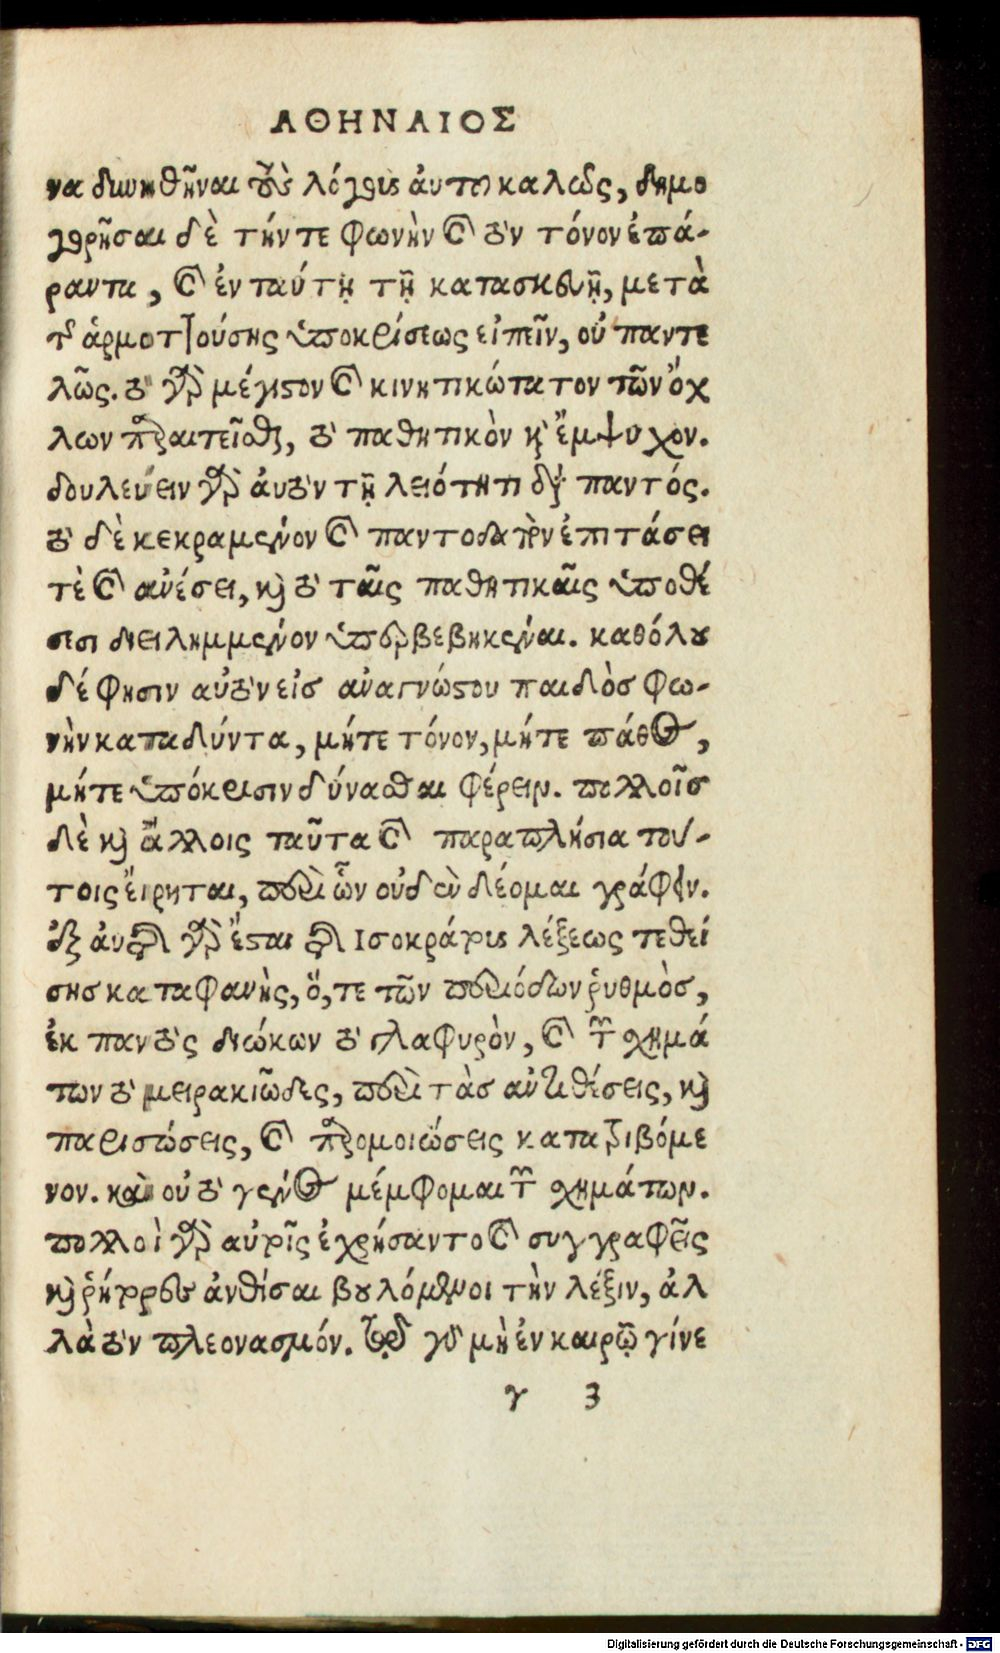 ΑΘΗΝΑΙΟΣ
να διωηθῆναι τοὺς λόγους ἀυτο καλῶς, δημο
γορῆσαι δὲ τήν τε φωνὴν καὶ τὸν τόνον ἐπά-
ραντα, καὶ ἐν ταύτῃ τῇ κατασκευῇ, μετὰ
τῆς ἁρμοτζούσης ὑποκρίσεως εἰπεῖν, οὐ παντε
λῶς. τὸ γὰρ μέγιστον καὶ κινητικώτατον τῶν ὄχ
λων παραιτεῖσθαι, τὸ παθητικὸν καὶ ἔμψυχον.
δουλεύειν γὰρ ἀυτὸν τῇ λειότητι διὰ παντός.
τὸ δὲ κεκραμένον καὶ παντοδαπὸν ἐπιτάσει
τὲ καὶ ἀνέσει, καὶ τὸ ταῖς παθητικαῖς ὑποθέ
σεσι διειλημμένον ὑπερβεβηκέναι. καθόλου
δέ φησιν αὐτὸν εἰσ ἀναγνώστου παιδὸσ φω-
νὴν καταδύντα, μήτε τόνον, μήτε πάθος,
μήτε ὑπόκρισιν δύνασθαι φέρειν. πολλοῖσ
δὲ καὶ ἄλλοις ταῦτα καὶ παραπλήσια τού-
τοις ἔιρηται, περὶ ὧν οὐδὲν δέομαι γράφειν.
ἐξ ἀυτῆς γὰρ ἔσται τῆς Ισοκράτους λέξεως τεθεί
σησ καταφανὴς, ὅ,τε τῶν περιόδων ῥυθμὸσ,
ἐκ παντὸς διώκων τὸ γλαφυρὸν, καὶ τῶν σχημά
των τὸ μειρακιῶδες, περὶ τὰσ ἀντιθέσεις, καὶ
παρισώσεις, καὶ παρομοιώσεις κατατριβόμε
νον. καὶ οὐ τὸ γένος μέμφομαι τῶν σχημάτων.
πολλοὶ γὰρ αὐτοῖς ἐχρήσαντο καὶ συγγραφεῖς
καὶ ῥήτορες ἀνθίσαι βουλόμενοι τὴν λέξιν, ἀλ
λὰ τὸν πλεονασμόν. τῷ γὰρ μὴ ἐν καιρῷ γίνε
γ 3
Digitalisierung gefördert durch die Deutsche Forschungsgemeinschaft - DFG